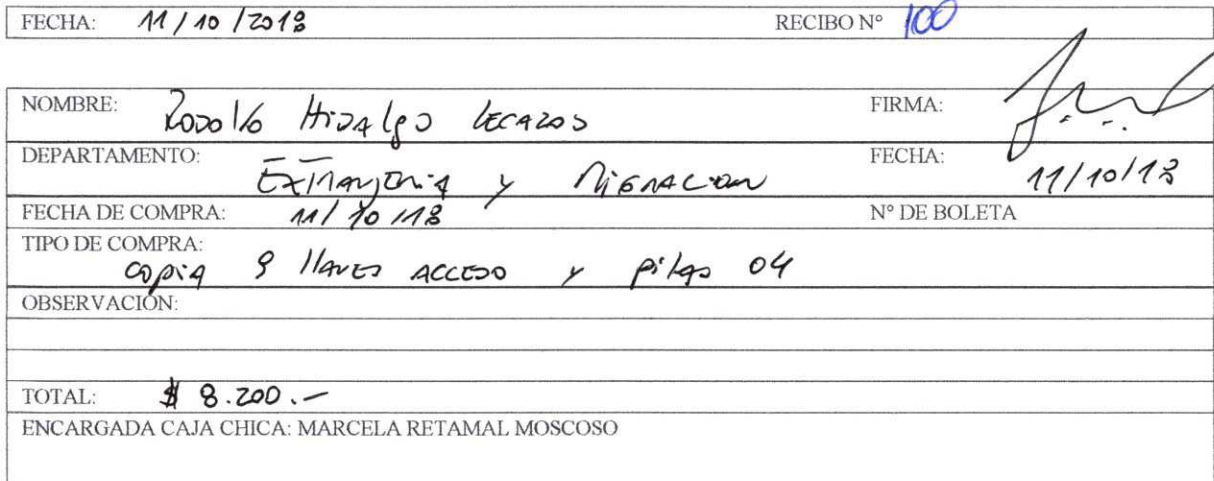 FECHA: 11/10/2018 RECIBO N° 100
NOMBRE: Rodolfo Hidalgo Lecaros FIRMA:
DEPARTAMENTO: Extranjeria y Migracion FECHA: 11/10/18
FECHA DE COMPRA: 11/10/18 N° DE BOLETA
TIPO DE COMPRA:
copia 9 llaves acceso y pilas 04
OBSERVACIÓN:
TOTAL: $ 8.200.-
ENCARGADA CAJA CHICA: MARCELA RETAMAL MOSCOSO